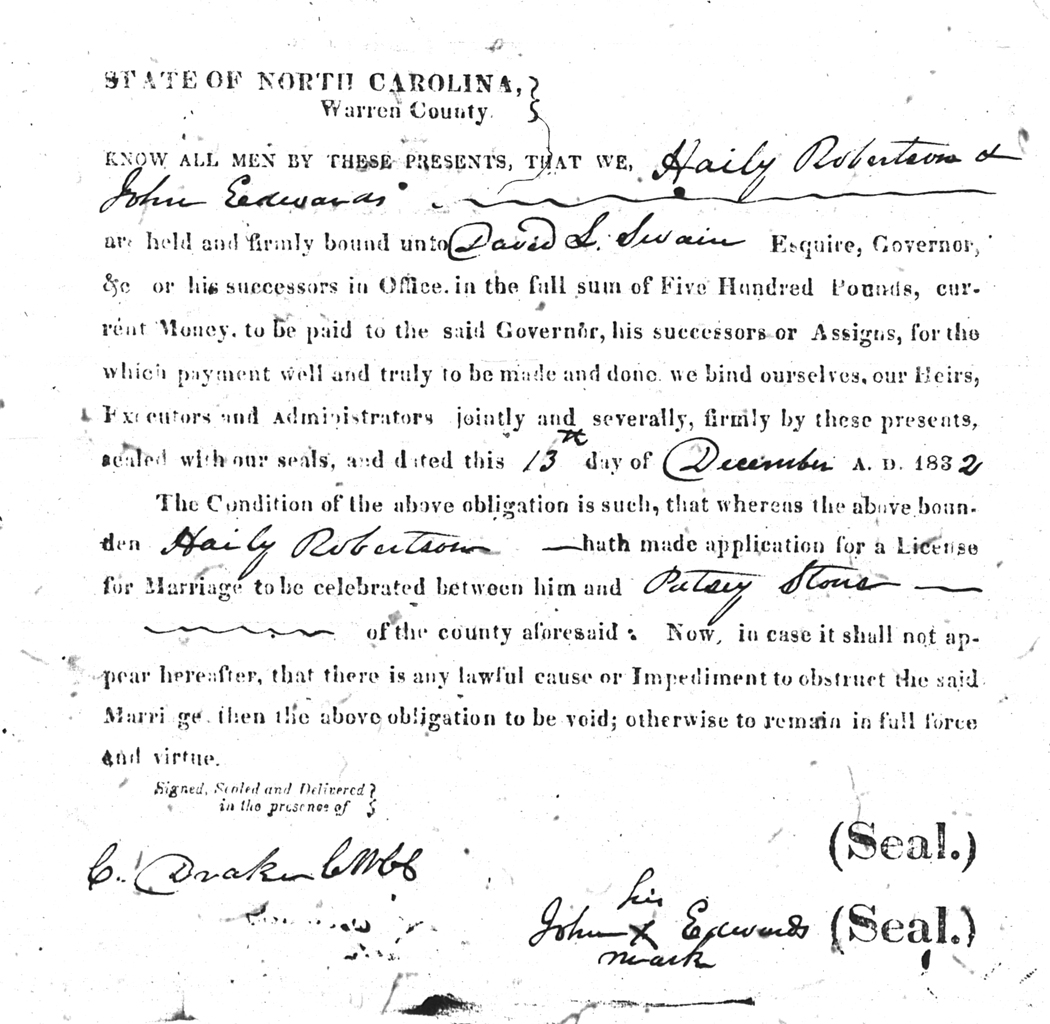 STATE OF NORTH CAROLINA,
Warren County.
KNOW ALL MEN BY THESE PRESENTS, THAT WE, Haily Robertson &
John Eedwards
are held and firmly bound unto David L. Swain Esquire, Governor,
&c or his successors in Office. in the full sum of Five Hundred Pounds, cur-
rent Money. to be paid to the said Governor, his successors or Assigns, for the
which payment well and truly to be made and done. we bind ourselves, our Heirs,
Executors and Administrators jointly and severally, firmly by these presents,
sealed with our seals, and dated this 13th day of December A. D. 1832
The Condition of the above obligation is such, that whereas the above boun-
den Haily Robertson hath made application for a License
for Marriage to be celebrated between him and Patsey Stone
of the county aforesaid: Now, in case it shall not ap-
pear hereafter, that there is any lawful cause or Impediment to obstruct the said
Marriage. then the above obligation to be void; otherwise to remain in full force
and virtue.
Signed, Sealed and Delivered
in the presence of
(Seal.)
C. Drake CWCC
his
John X Edwards (Seal.)
mark